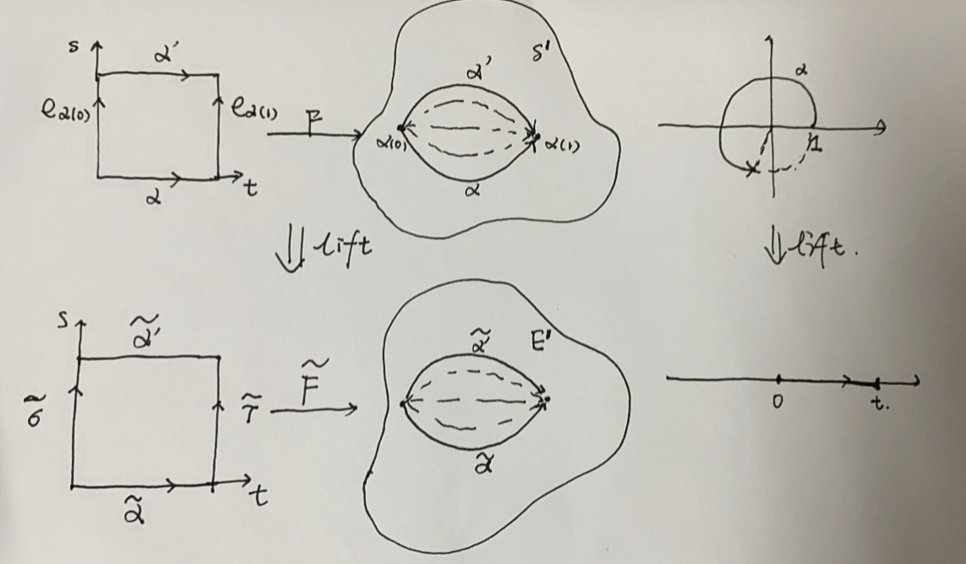 s
α'
e_α(0)
e_α(1)
α
t
F
S'
α'
α(0)
α(1)
α
α
1
lift
lift.
s
α̃'
σ̃
τ̃
α̃
t
F̃
E'
α̃'
α̃
0
t.